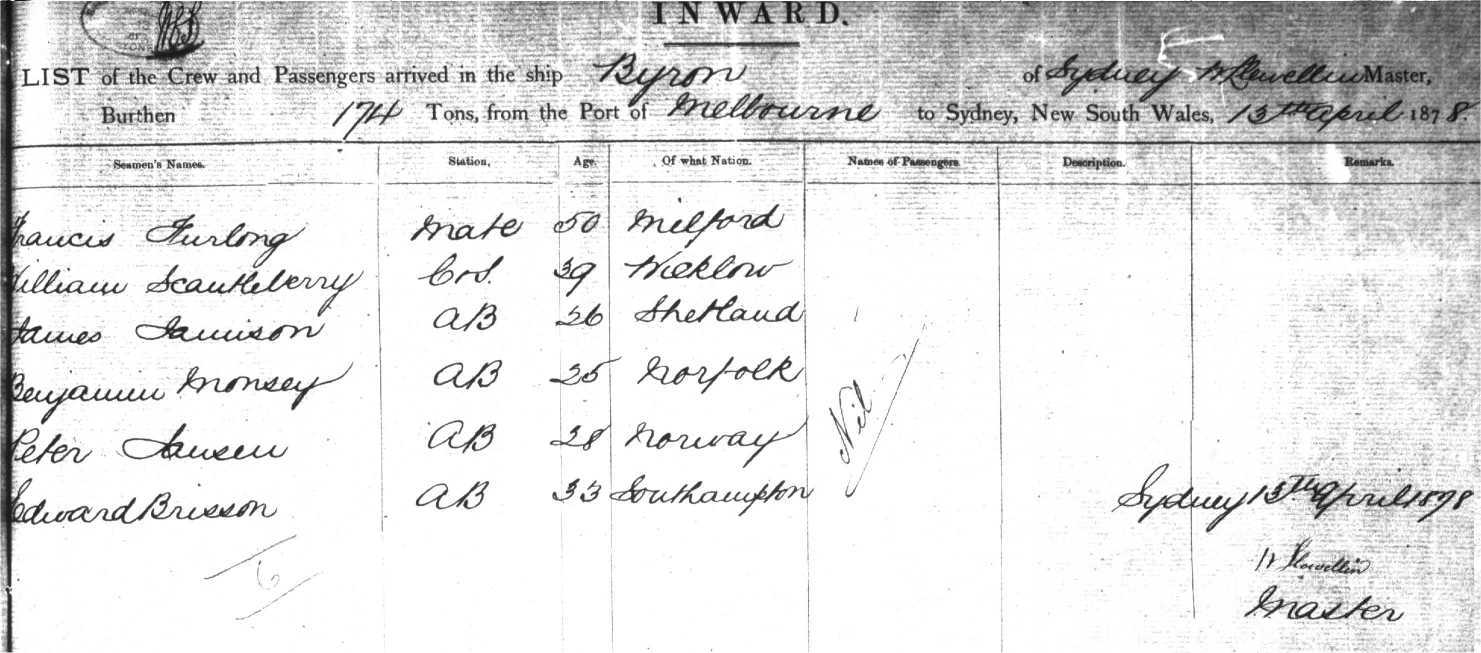 INWARD.
LIST of the Crew and Passengers arrived in the ship Byron of Sydney W Llewellin Master,
Burthen 174 Tons, from the Port of Melbourne to Sydney, New South Wales, 13th April 1878.
Seamen's Names. Station. Age. Of what Nation. Names of Passengers. Description. Remarks.
Francis Furlong Mate 50 Milford
William Scantleberry C&S. 39 Wicklow
James Jamison AB 26 Shetland
Benjamin Monsey AB 25 Norfolk
Peter Jansen AB 28 Norway
Nil
Edward Brisson AB 33 Southampton
Sydney 13th April 1878
6
W Llewellin
Master